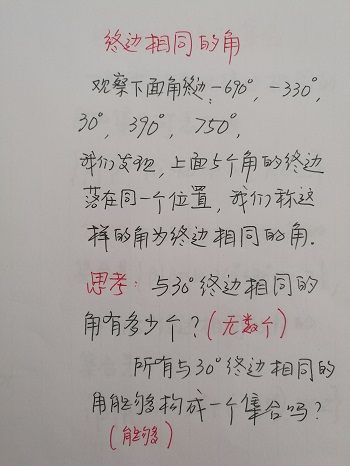 终边相同的角
观察下面角终边:-690°,-330°,
30°,390°,750°,
我们发现,上面5个角的终边
落在同一个位置,我们称这
样的角为终边相同的角.
思考:与30°终边相同的
角有多少个?(无数个)
所有与30°终边相同的
角能够构成一个集合吗?
(能够)